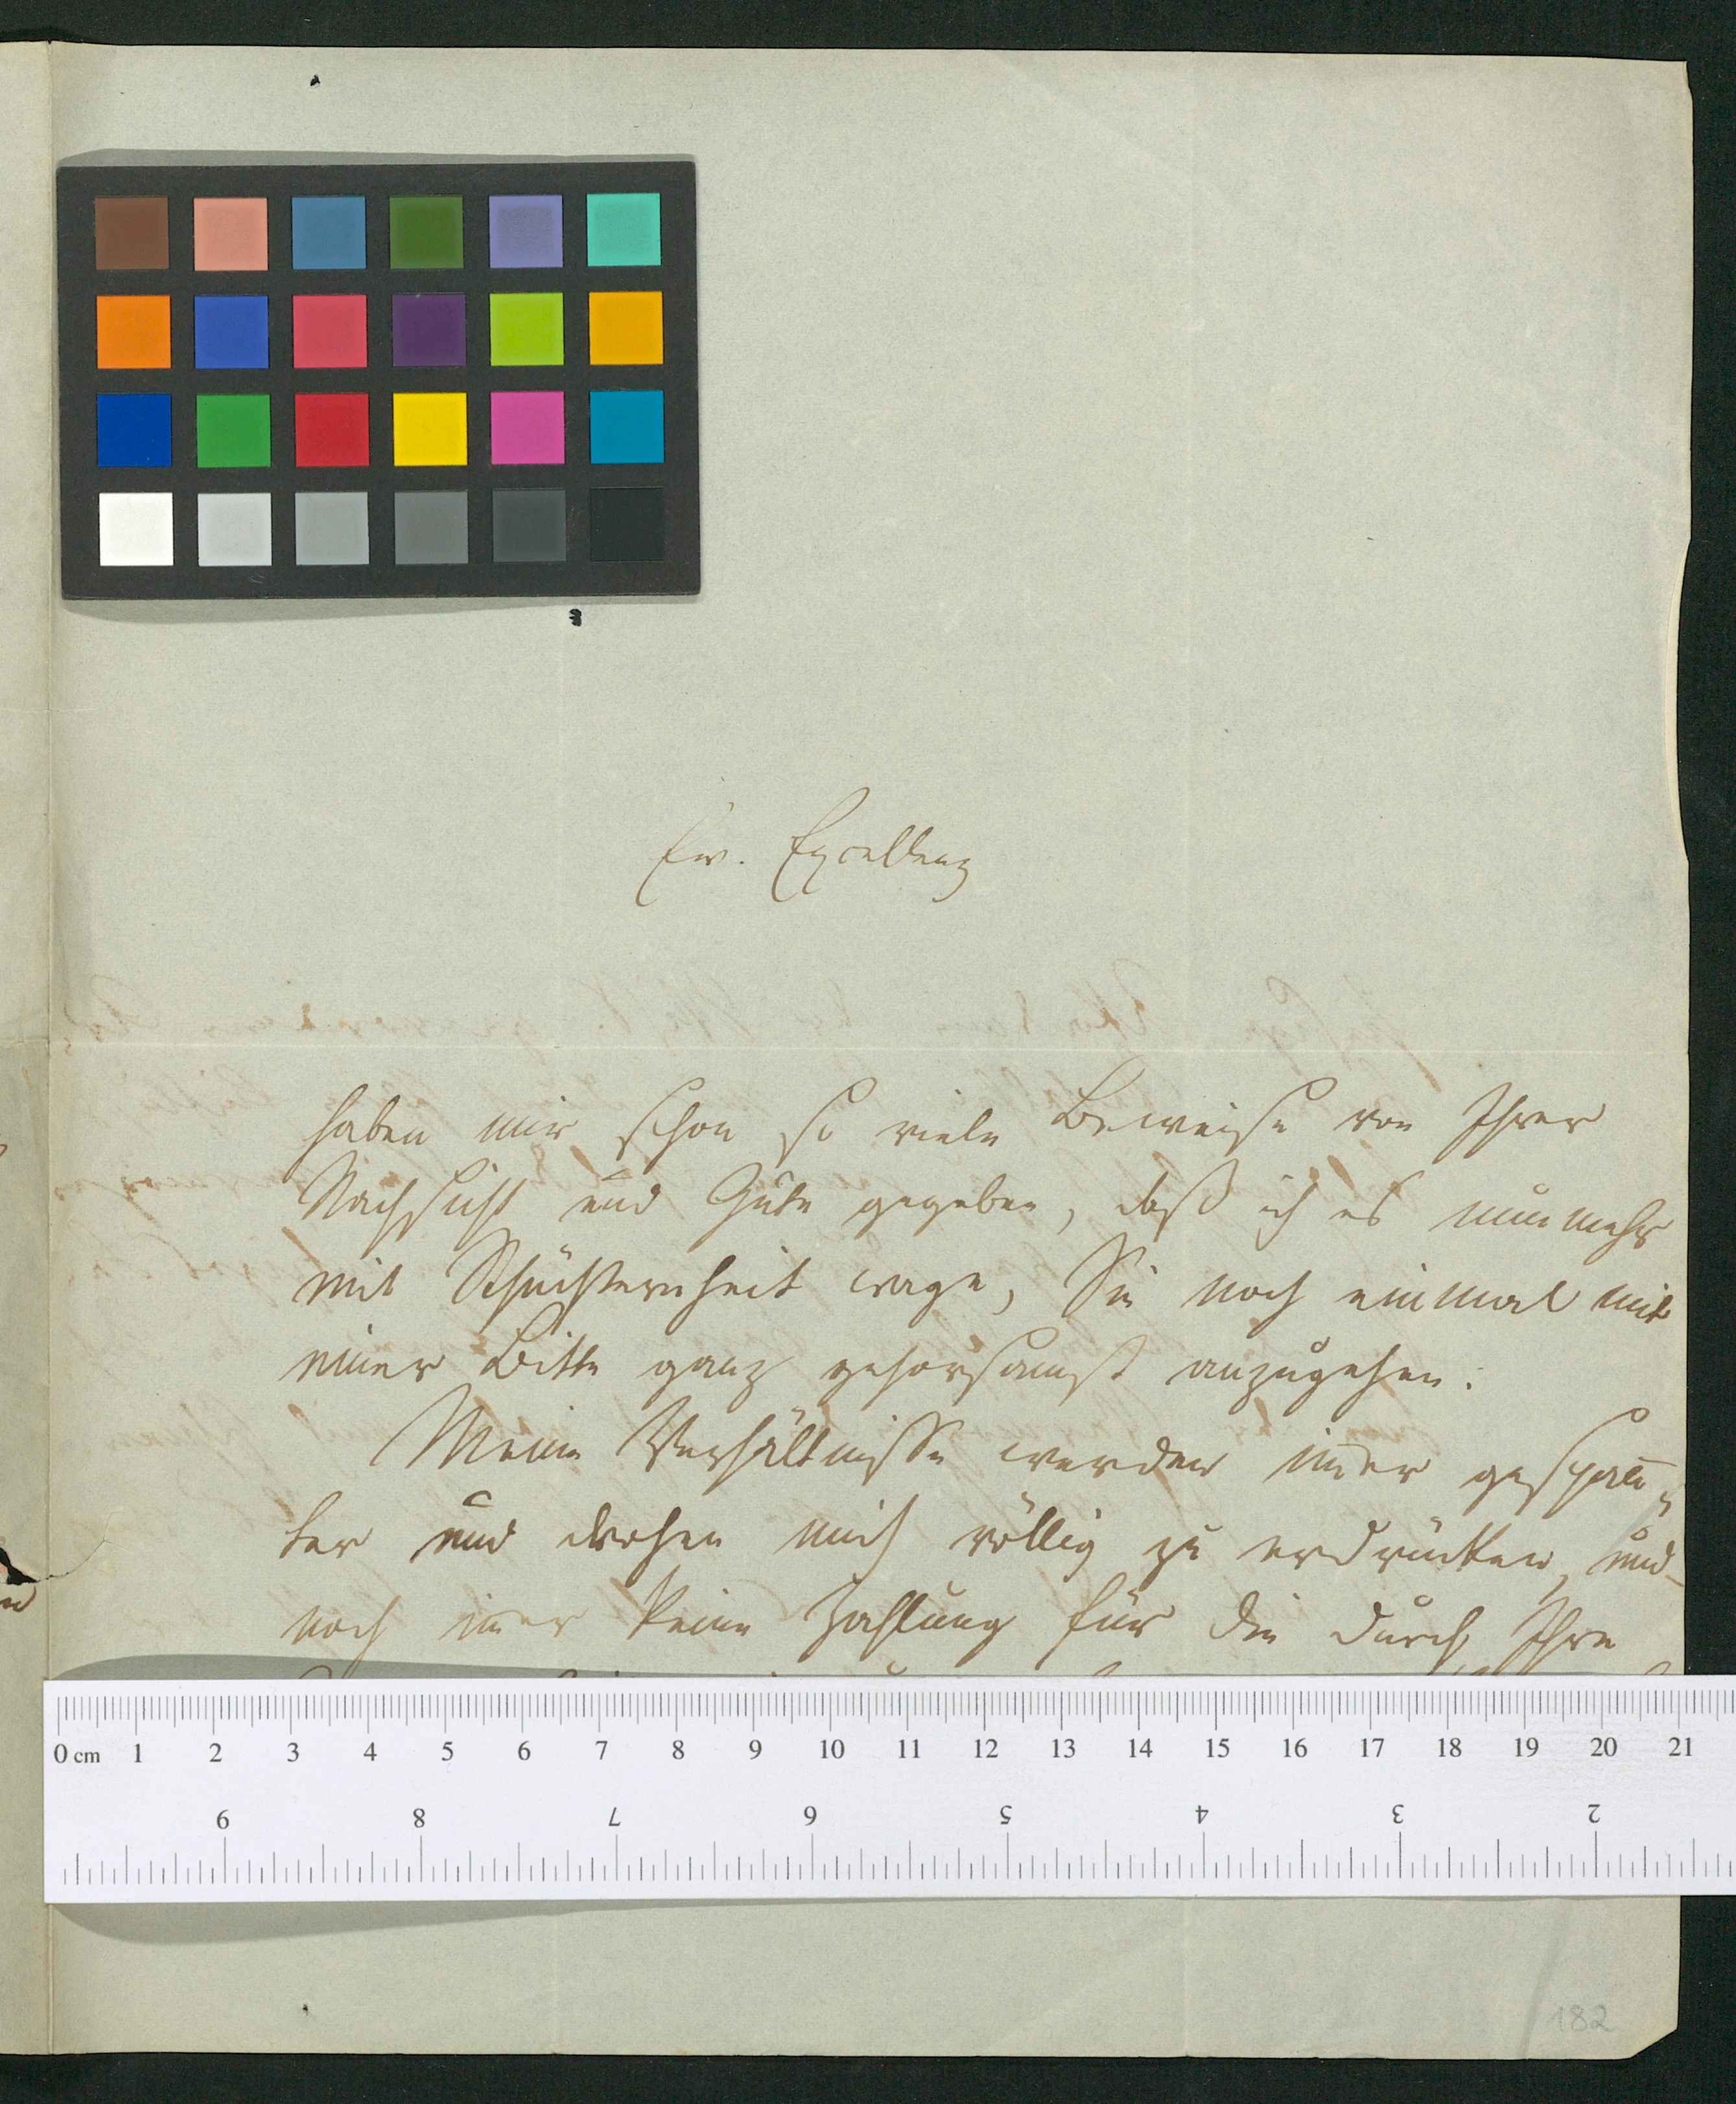 Ew. Excellenz
haben mir schon so viele Beweise von Ihrer
Nachsicht und Güte gegeben, daß ich es nunmehr
mit Schüchternheit wage, Sie noch einmal mit
einer Bitte ganz gehorsamst anzugehen:
Meine Verhältnisse werden im̄er gespan̄¬
ter und drohen mich völlig zu erdrücken, und
noch im̄er keine Zahlung für die durch Ihre
0 cm 1 2 3 4 5 6 7 8 9 10 11 12 13 14 15 16 17 18 19 20 21
9 8 7 6 5 4 3 2
182